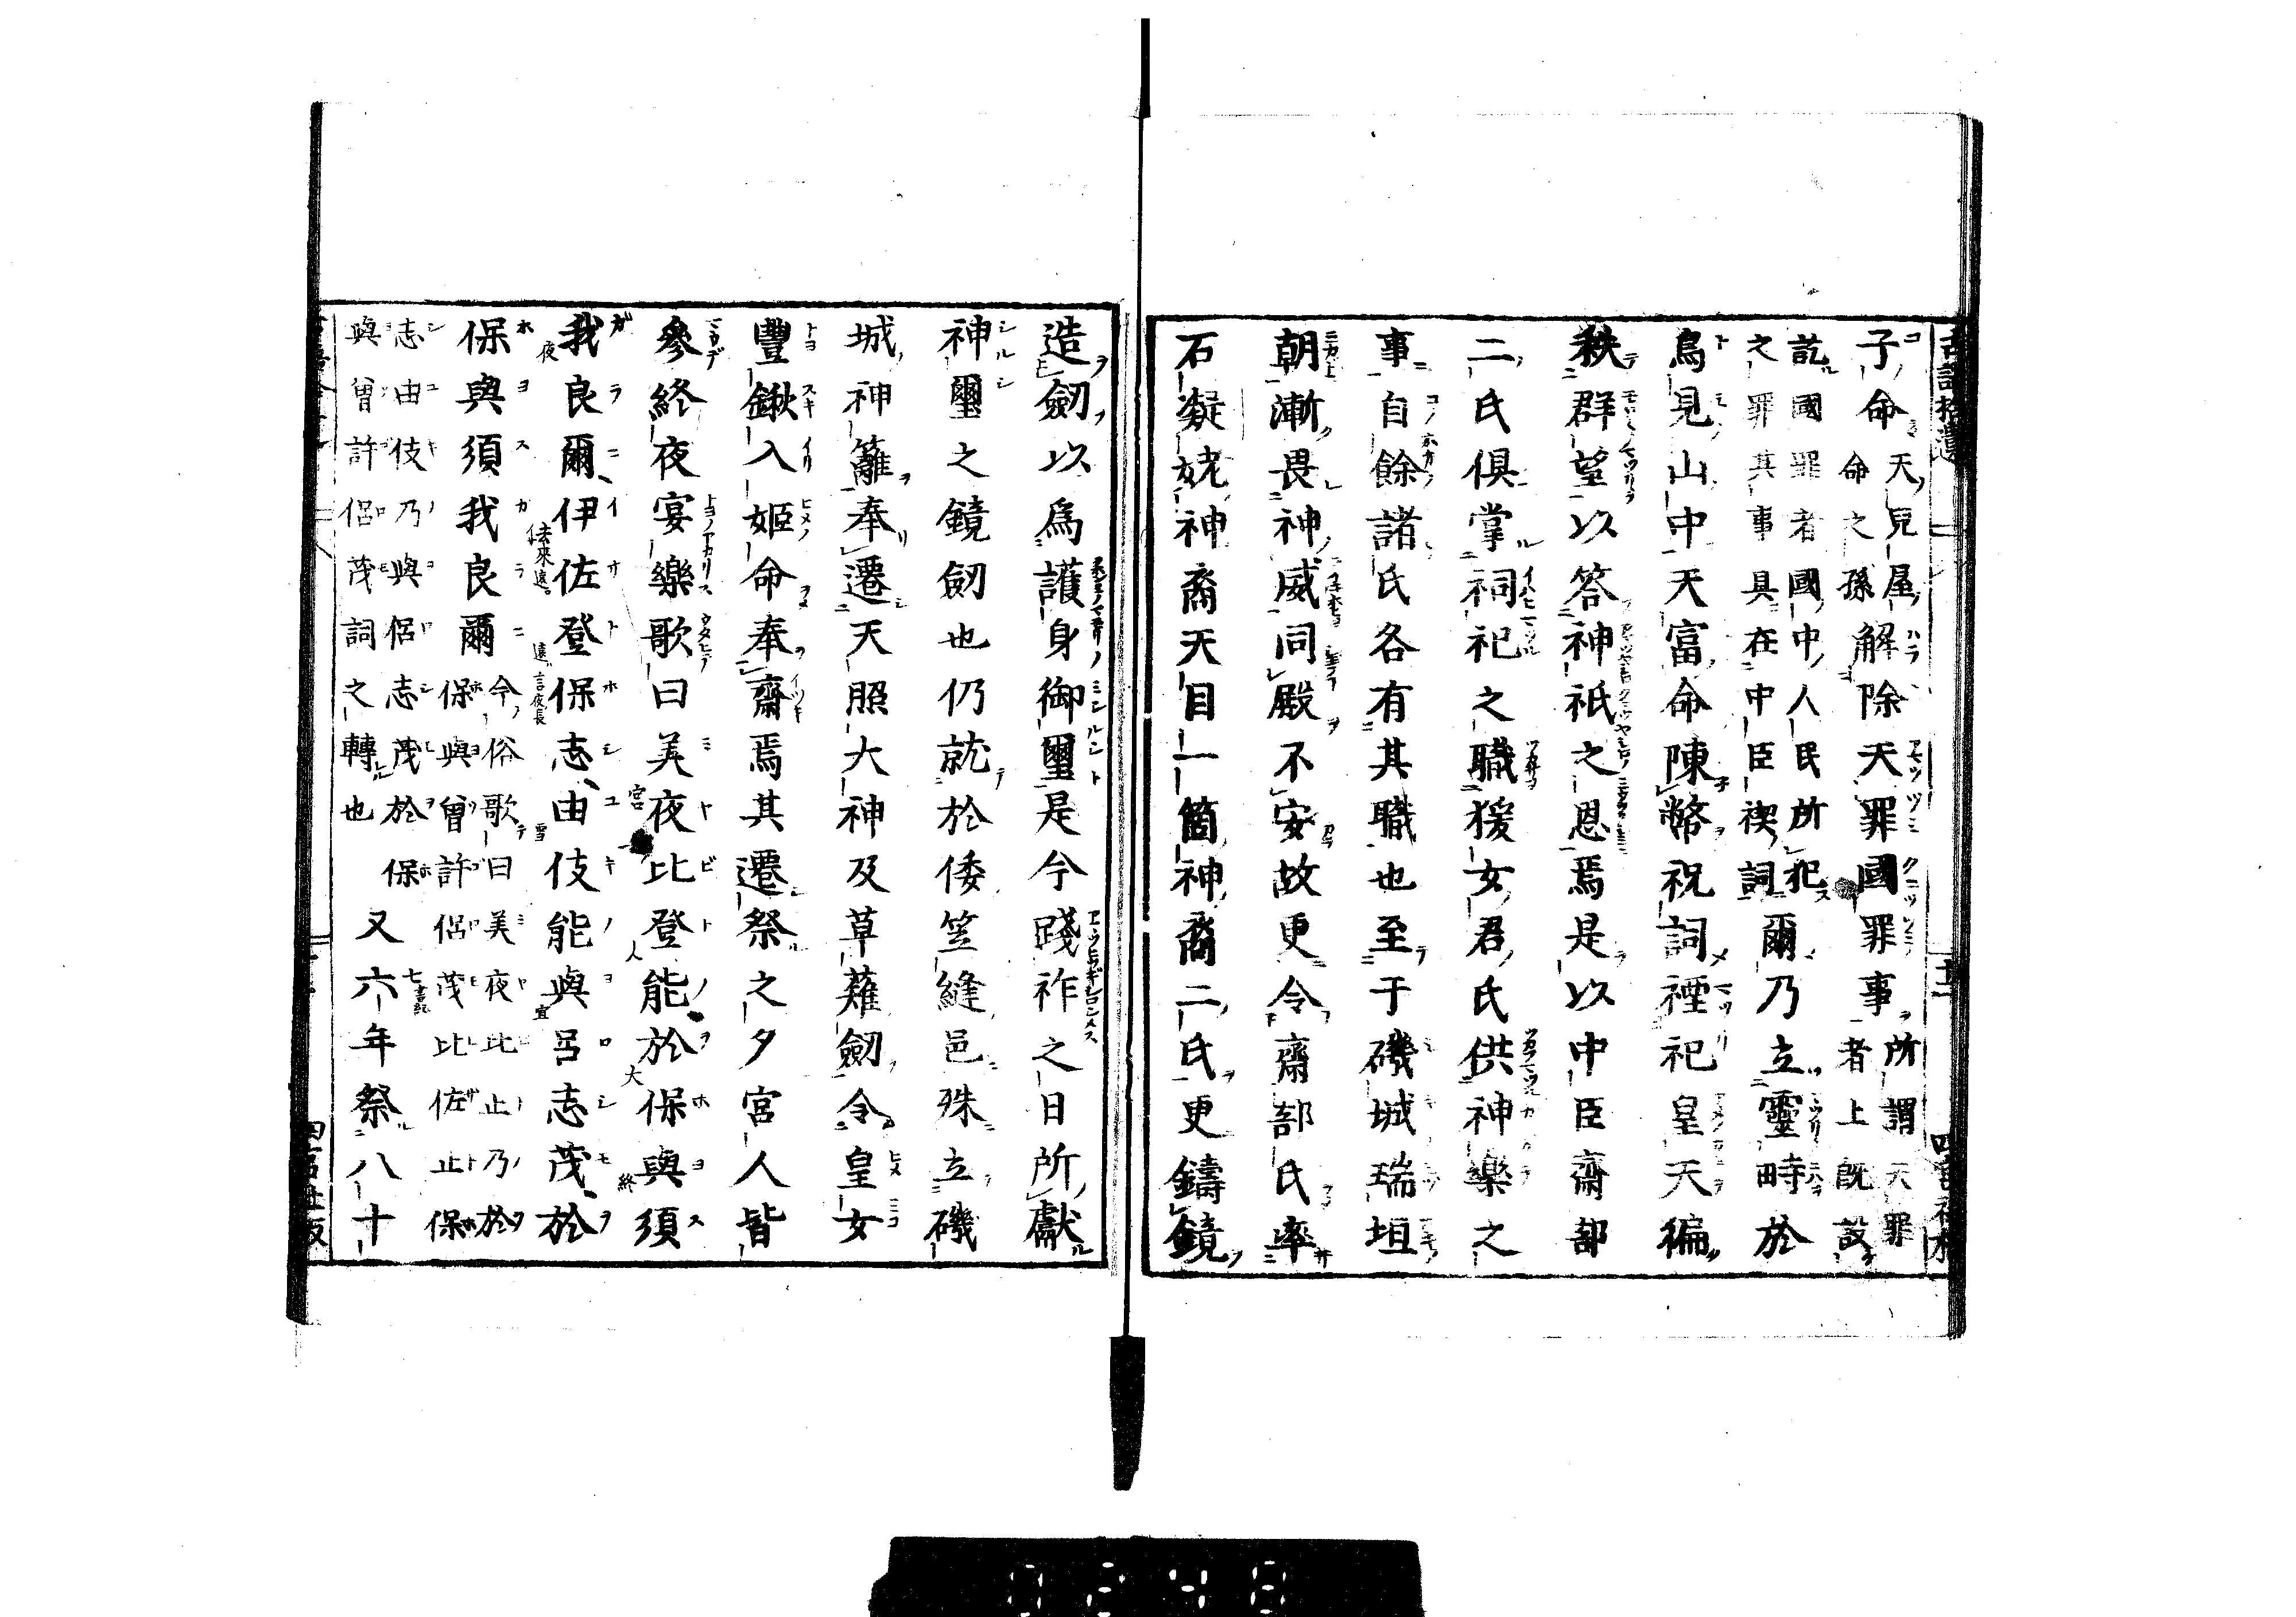 古語拾遺
子命天兒屋命之孫解除天罪國罪事所謂天罪者上既設
訖國罪者國中人民所犯之罪其事具在中臣禊詞爾乃立靈畤於
鳥見山中天富命陳幣祝詞禋祀皇天徧
秩群望以答神祇之恩焉是以中臣齋部
二氏俱掌祠祀之職猨女君氏供神樂之
事自餘諸氏各有其職也至于磯城瑞垣
朝漸畏神威同殿不安故更令齋部氏率
石凝姥神裔天目一箇神裔二氏更鑄鏡
造劒以爲護身御璽是今踐祚之日所獻
神璽之鏡劒也仍就於倭笠縫邑殊立磯
城神籬奉遷天照大神及草薙劒令皇女
豐鍬入姬命奉齋焉其遷祭之夕宮人皆
參終夜宴樂歌曰美夜比登能於保與須
我良爾伊佐登保志由伎能與呂志茂於
保與須我良爾今俗歌曰美夜比止乃於保與曾許侶茂比佐止保
志由伎乃與侶志茂於保與曾許侶茂詞之轉也又六年祭八十